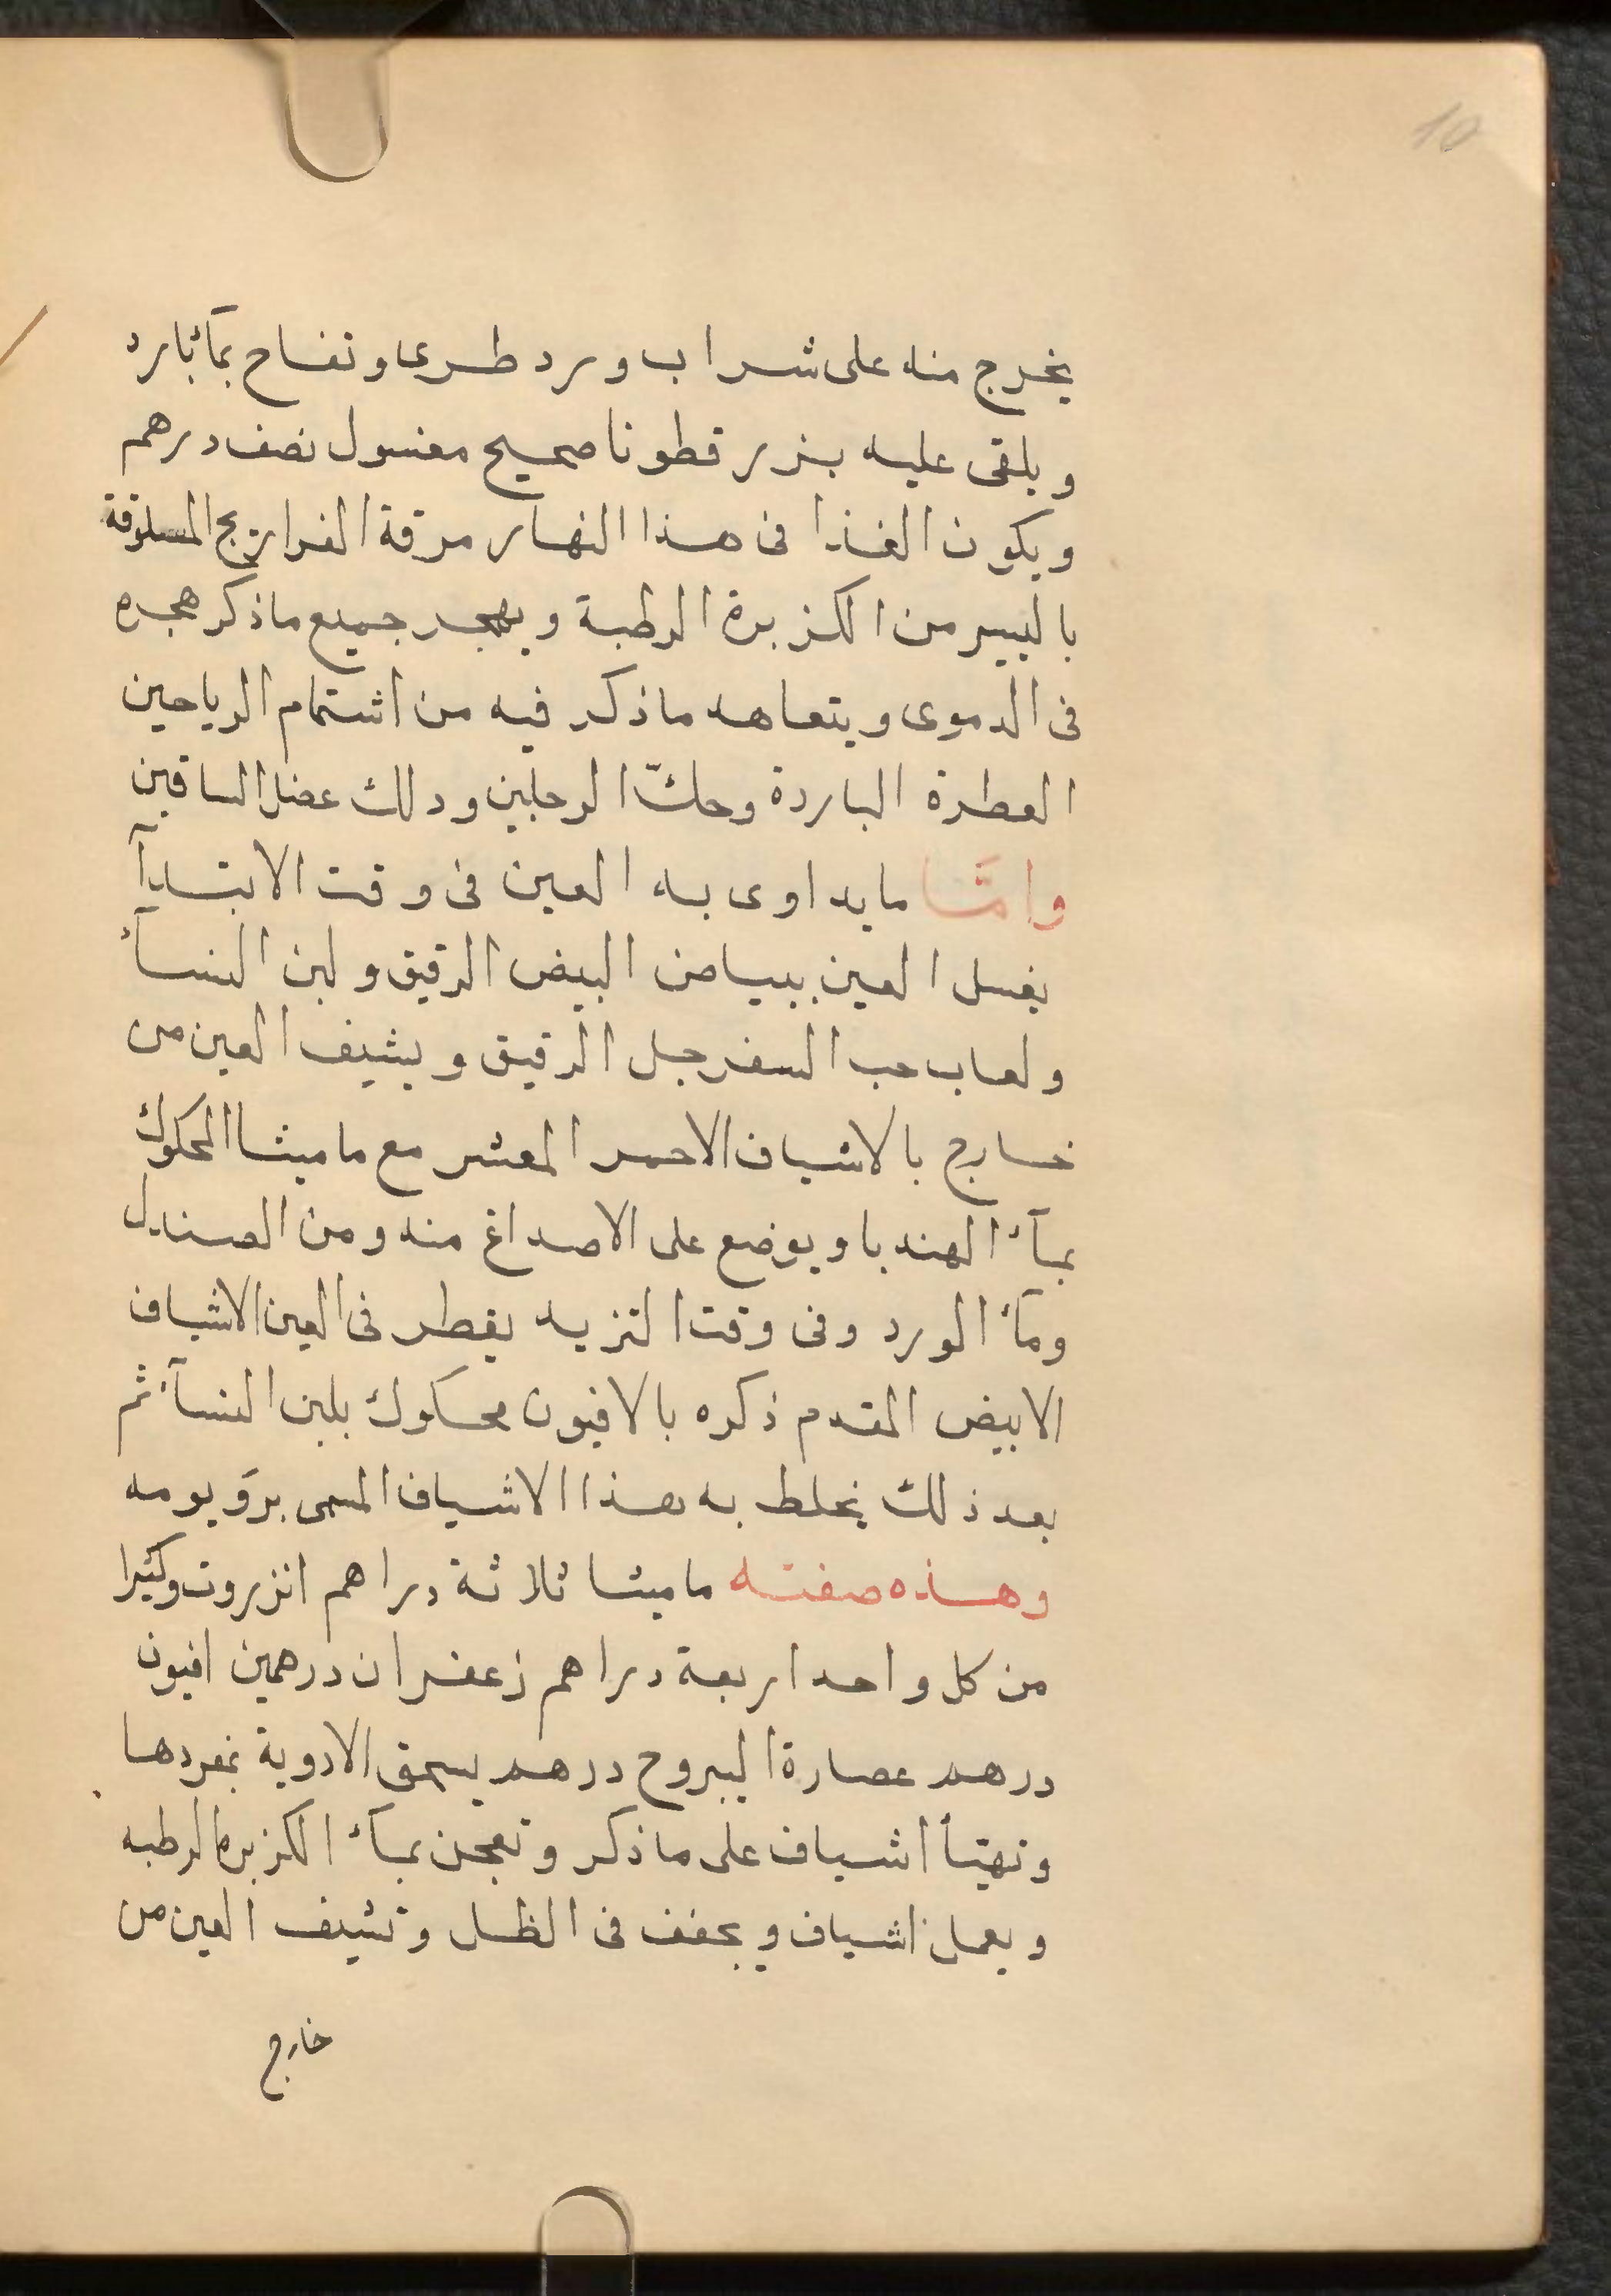 10
يخرج منه على شراب ورد طرى وتفاح بمآء بارد
ويلقى عليه بزر قطونا صحيح مغسول نصف درهم
ويكون الغذا فى هذا النهار مرقة الفراريج المسلوقة
باليسير من الكزبرة الرطبة ويهجر جميع ماذكر هجره
فى الدموى ويتعاهد ماذكر فيه من اشتمام الرياحين
العطرة الباردة وحكّ الرجلين ودلك عضل الساقين
وامّا مايداوى به العين فى وقت الابتدآ
يغسل العين ببياض البيض الرقيق ولبن النسآء
ولعاب حب السفرجل الرقيق ويشيف العين من
خارج بالاشياف الاحمر المعشر مع ماميثا المحكوك
بمآء الهندبا ويوضع على الاصداغ منه ومن الصندل
ومآء الورد وفى وقت التزيد يقطر فى العين الاشياف
الابيض المقدم ذكره بالافيون محكوك بلبن النسآء ثم
بعد ذلك يخلط به هذا الاشياف المسمى بروَ يومه
وهذه صفته ماميثا ثلاثة دراهم انزروت وكثيرا
من كل واحد اربعة دراهم زعفران درهمين افيون
درهم عصارة اليبروح درهم يسحق الادوية بمفردها
وتهيّأ اشياف على ماذكر وتعجن بمآء الكزبره الرطبه
ويعمل اشياف ويجفف فى الظل وتشيف العين من
خارج